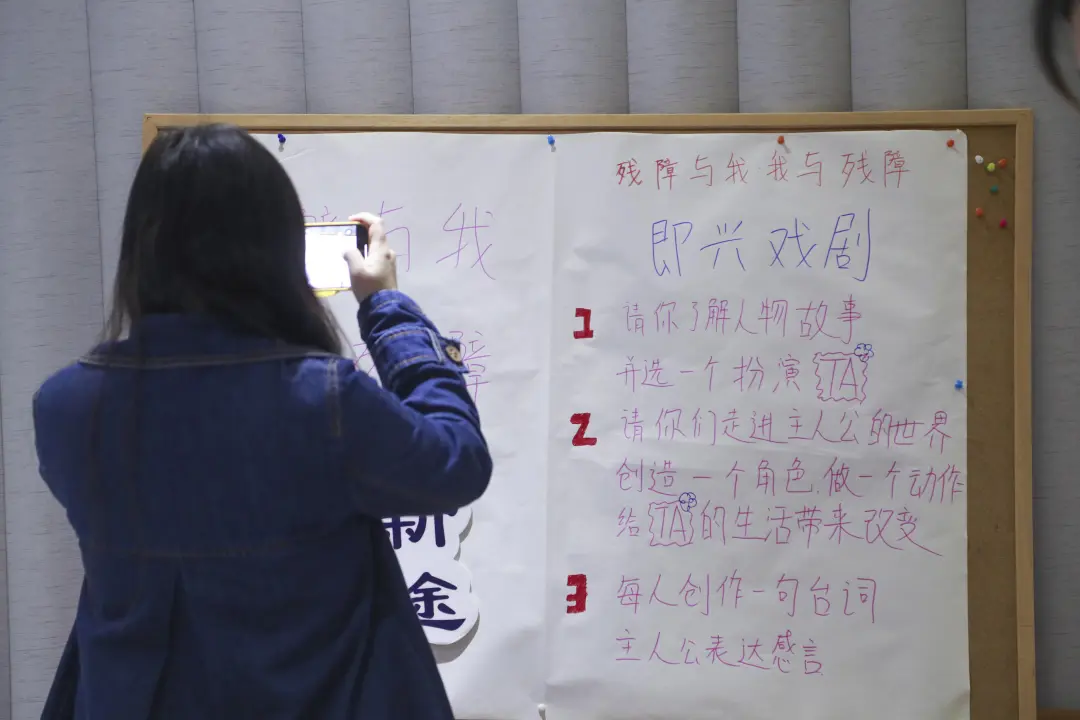 与我
障
新
途
残障与我 我与残障
即兴戏剧
1 请你了解人物故事
并选一个扮演TA
2 请你们走进主人公的世界
创造一个角色.做一个动作
给TA的生活带来改变
3 每人创作一句台词
主人公表达感言